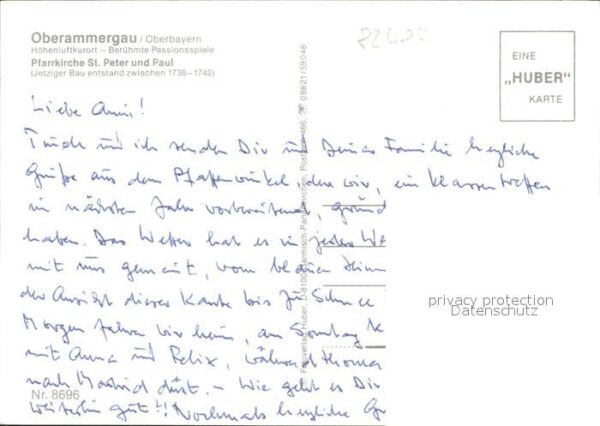 Oberammergau / Oberbayern
Höhenluftkurort – Berühmte Passionsspiele
Pfarrkirche St. Peter und Paul
(Jetziger Bau entstand zwischen 1736–1742)
EINE
„HUBER"
KARTE
Liebe Anni!
und ich senden Dir und Deiner Familie herzliche
Grüße aus dem Pfaffenwinkel, den wir, ein Klassentreffen
im nächsten Jahr vorbereitend, gründ
haben. Das Wetter hat es in jeder We
mit uns gemeint, vom blauen Himm
der Ansicht dieser Karte bis zu Schnee
Morgen fahren wir heim, am Sonntag k
mit Anna und Felix, während Thomas
nach Madrid düst. – Wie geht es Dir
weiterhin gut?! Nochmals herzliche Gr
Nr. 8696
Fotoverlag Huber, D-8100 Garmisch-Partenkirchen, Postfach 466, ☎ 08821/59048
privacy protection
Datenschutz